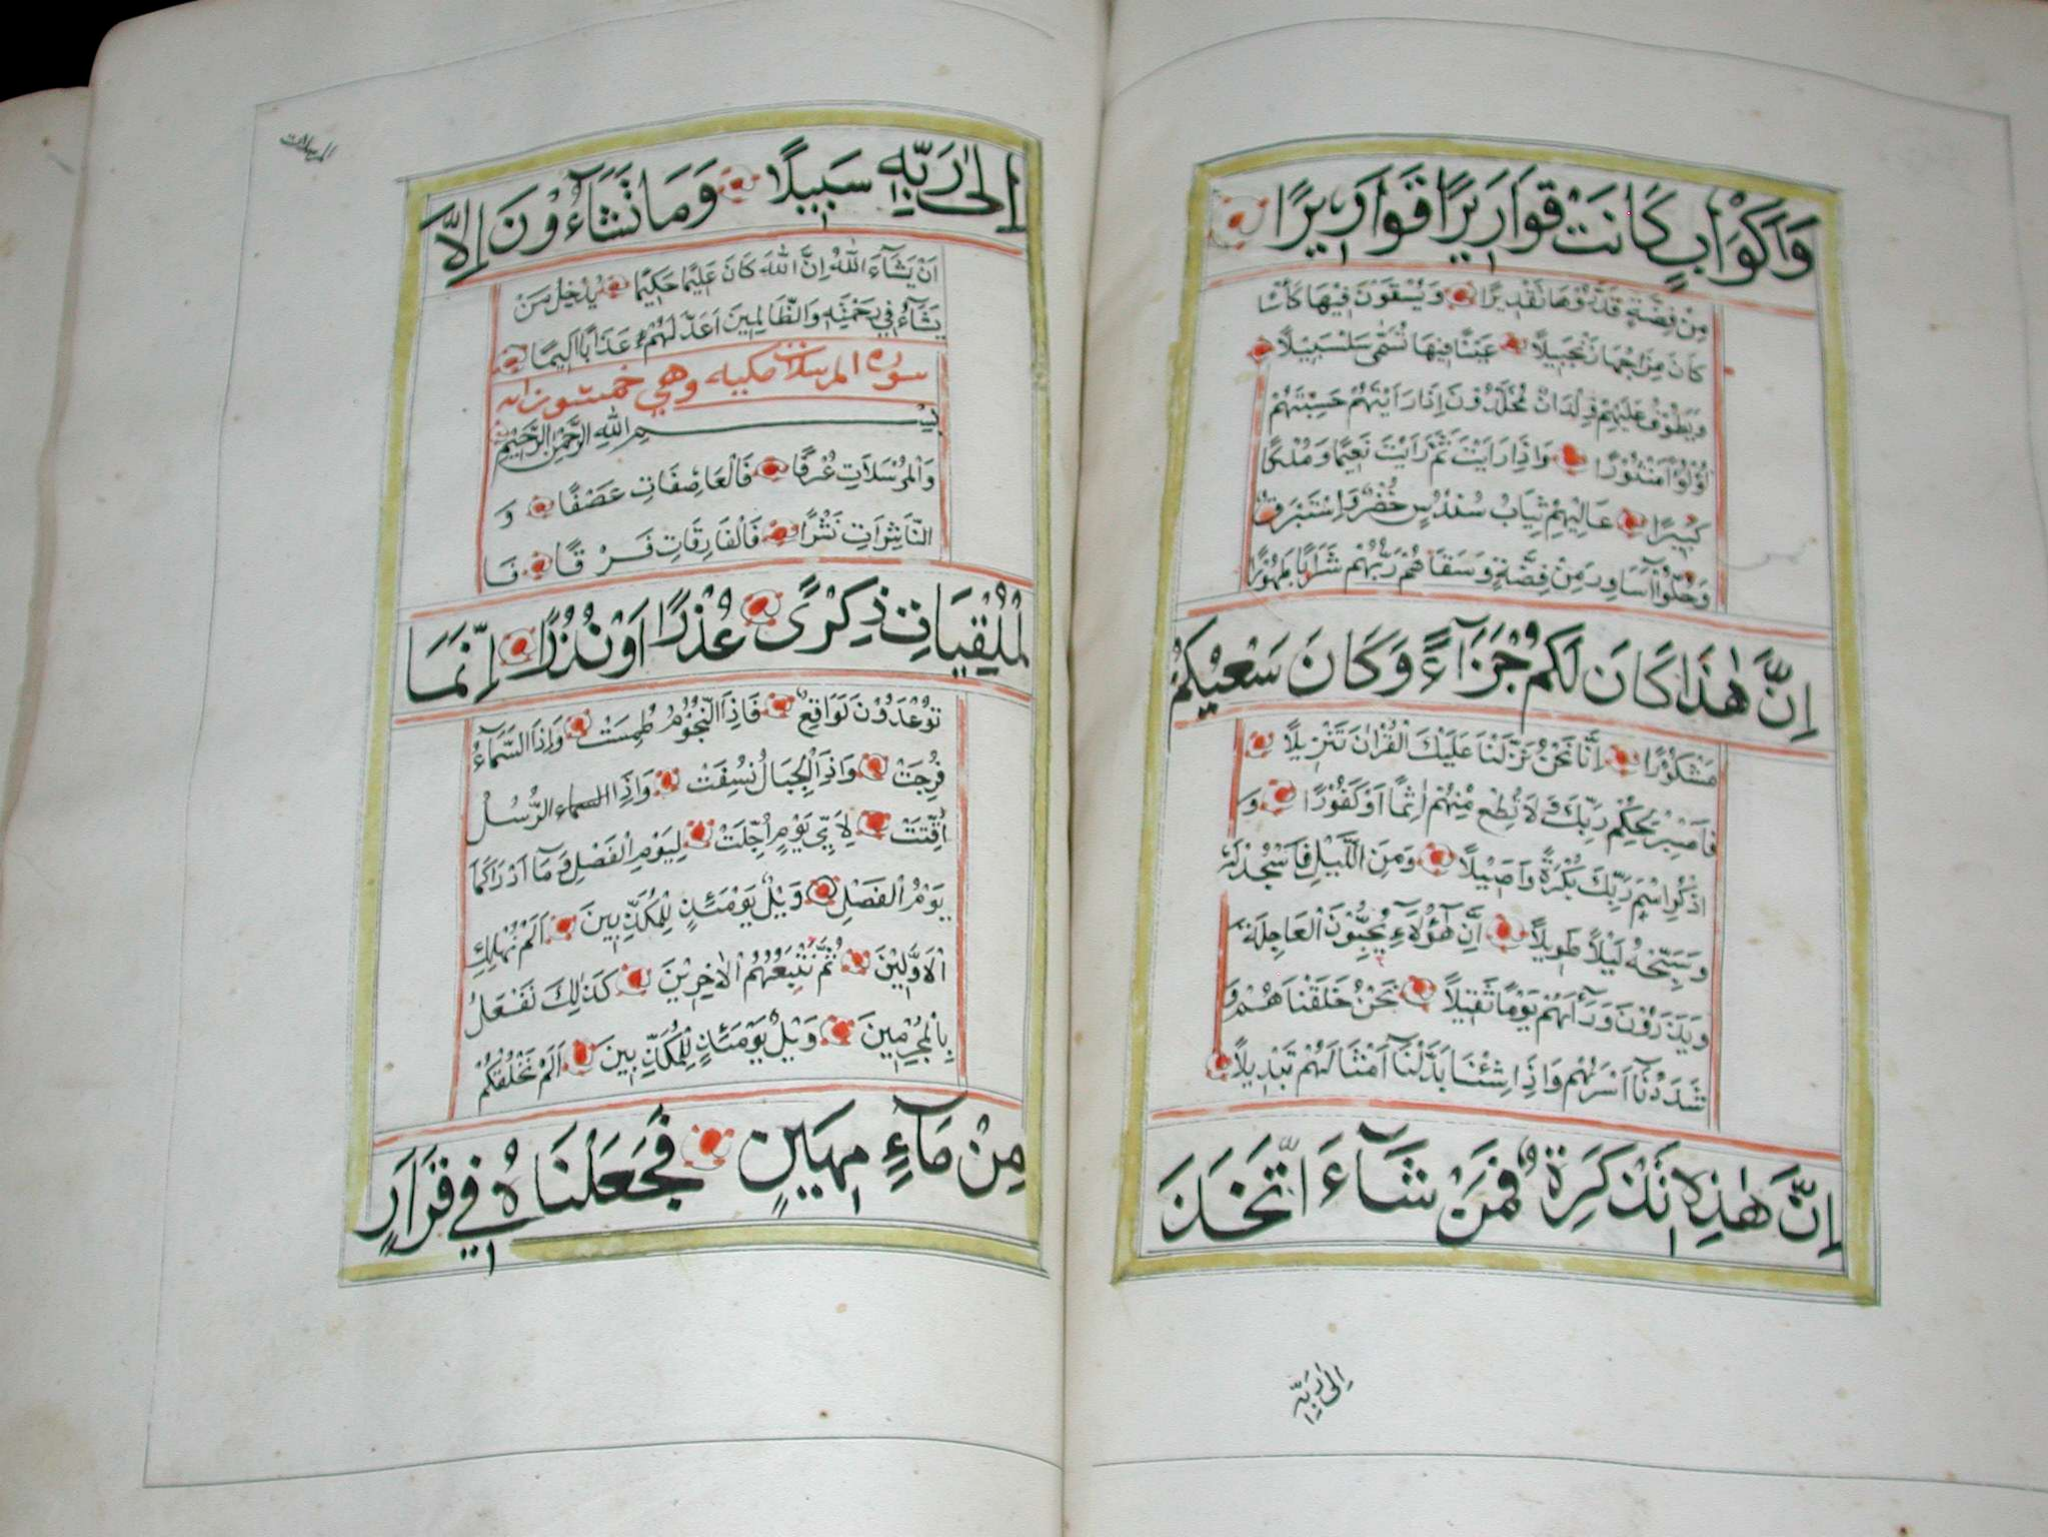 وَاَكْوَابٍ كَانَتْ قَوَارِيرًا قَوَارِيرًا
مِنْ فِضَّةٍ قَدَّرُوْهَا تَقْدِيرًا وَيُسْقَوْنَ فِيْهَا كَاْسًا
كَانَ مِزَاجُهَا زَنْجَبِيلًا عَيْنًا فِيهَا تُسَمّٰى سَلْسَبِيْلًا
وَيَطُوْفُ عَلَيْهِمْ وِلْدَانٌ مُخَلَّدُوْنَ اِذَا رَاَيْتَهُمْ حَسِبْتَهُمْ
لُؤْلُؤًا مَنْثُوْرًا وَاِذَا رَاَيْتَ ثَمَّ رَاَيْتَ نَعِيْمًا وَمُلْكًا
كَبِيْرًا عَالِيَهُمْ ثِيَابُ سُنْدُسٍ خُضْرٌ وَاِسْتَبْرَقٌ
وَحُلُّوْآ اَسَاوِرَ مِنْ فِضَّةٍ وَسَقَاهُمْ رَبُّهُمْ شَرَابًا طَهُوْرًا
اِنَّ هٰذَا كَانَ لَكُمْ جَزَآءً وَكَانَ سَعْيُكُمْ
مَشْكُوْرًا اِنَّا نَحْنُ نَزَّلْنَا عَلَيْكَ الْقُرْاٰنَ تَنْزِيْلًا
فَاصْبِرْ لِحُكْمِ رَبِّكَ وَلَا تُطِعْ مِنْهُمْ اٰثِمًا اَوْ كَفُوْرًا وَ
اذْكُرِ اسْمَ رَبِّكَ بُكْرَةً وَاَصِيْلًا وَمِنَ اللَّيْلِ فَاسْجُدْ لَهُ
وَسَبِّحْهُ لَيْلًا طَوِيْلًا اِنَّ هٰٓؤُلَآءِ يُحِبُّوْنَ الْعَاجِلَةَ
وَيَذَرُوْنَ وَرَآءَهُمْ يَوْمًا ثَقِيْلًا نَحْنُ خَلَقْنَاهُمْ وَ
شَدَدْنَآ اَسْرَهُمْ وَاِذَا شِئْنَا بَدَّلْنَآ اَمْثَالَهُمْ تَبْدِيْلًا
اِنَّ هٰذِهٖ تَذْكِرَةٌ فَمَنْ شَآءَ اتَّخَذَ
اِلٰى رَبِّهٖ
المرسلات
اِلٰى رَبِّهٖ سَبِيلًا وَمَا تَشَآءُوْنَ اِلَّآ
اَنْ يَشَآءَ اللّٰهُ اِنَّ اللّٰهَ كَانَ عَلِيْمًا حَكِيْمًا يُدْخِلُ مَنْ
يَشَآءُ فِي رَحْمَتِهٖ وَالظَّالِمِيْنَ اَعَدَّ لَهُمْ عَذَابًا اَلِيْمًا
سورة المرسلات مكيه وهي خمسون ايه
بِسْمِ اللّٰهِ الرَّحْمٰنِ الرَّحِيْمِ
وَالْمُرْسَلَاتِ عُرْفًا فَالْعَاصِفَاتِ عَصْفًا وَ
النَّاشِرَاتِ نَشْرًا فَالْفَارِقَاتِ فَرْقًا فَا
لْمُلْقِيَاتِ ذِكْرًى عُذْرًا اَوْ نُذُرًا اِنَّمَا
تُوْعَدُوْنَ لَوَاقِعٌ فَاِذَا النُّجُوْمُ طُمِسَتْ وَاِذَا السَّمَآءُ
فُرِجَتْ وَاِذَا الْجِبَالُ نُسِفَتْ وَاِذَا السماء الرُّسُلُ
اُقِّتَتْ لِاَيِّ يَوْمٍ اُجِّلَتْ لِيَوْمِ الْفَصْلِ وَمَآ اَدْرَاكَمَا
يَوْمُ الْفَصْلِ وَيْلٌ يَوْمَئِذٍ لِلْمُكَذِّبِيْنَ اَلَمْ نُهْلِكِ
الْاَوَّلِيْنَ ثُمَّ نُتْبِعُهُمُ الْاٰخِرِيْنَ كَذٰلِكَ نَفْعَلُ
بِالْمُجْرِمِيْنَ وَيْلٌ يَوْمَئِذٍ لِلْمُكَذِّبِيْنَ اَلَمْ نَخْلُقْكُمْ
مِنْ مَآءٍ مَهِيْنٍ فَجَعَلْنَاهُ فِي قَرَارٍ